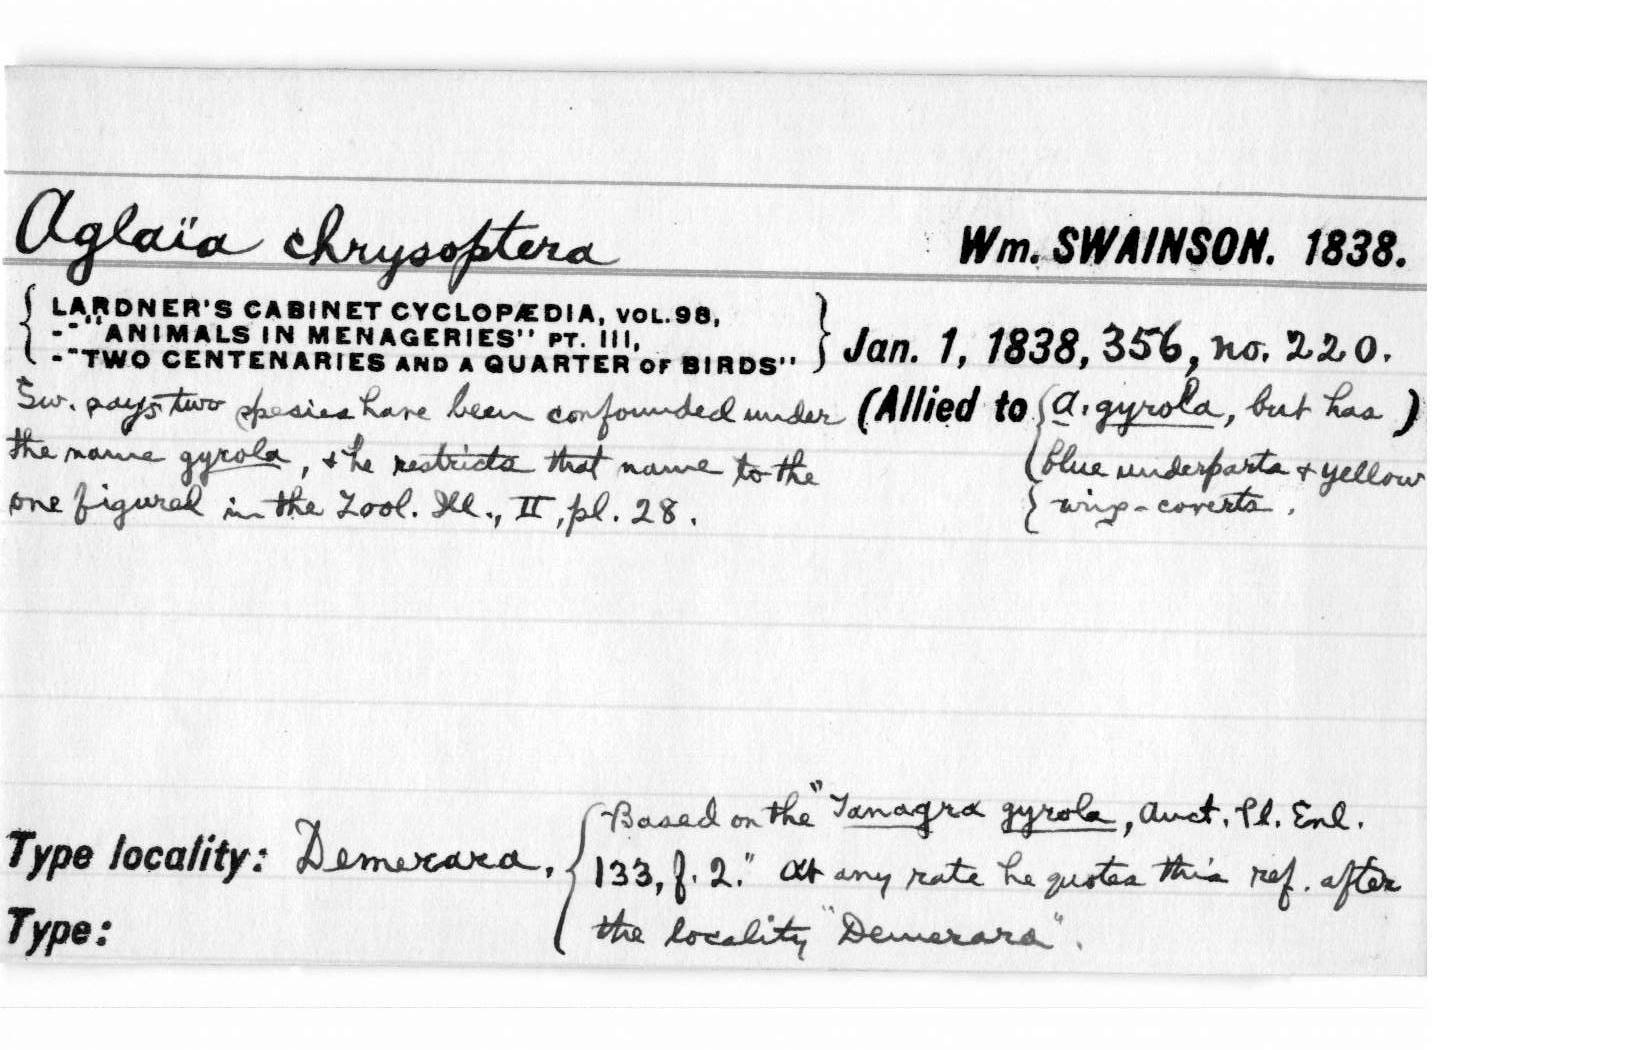 Aglaïa chrysoptera Wm. SWAINSON. 1838.
LARDNER'S CABINET CYCLOPÆDIA, VOL. 98,
--"ANIMALS IN MENAGERIES" PT. III,
--"TWO CENTENARIES AND A QUARTER OF BIRDS" Jan. 1, 1838, 356, no. 220.
Sw. says two spesies have been confounded under (Allied to A. gyrola, but has)
the name gyrola, & he restricts that name to the blue underparts & yellow
one figured in the Zool. Ill., II, pl. 28. wing-coverts.
Based on the "Tanagra gyrola, Auct. Pl. Enl.
Type locality: Demerara, 133, f. 2." At any rate he quotes this ref. after
Type: the locality "Demerara".